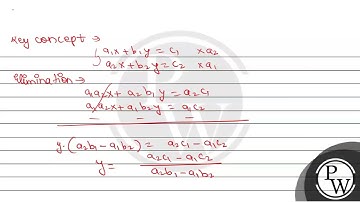 Key concept →
a₁x + b₁y = c₁ × a₂
a₂x + b₂y = c₂ × a₁
Elimination →
a₁a₂x + a₂b₁y = a₂c₁
a₁a₂x + a₁b₂y = a₁c₂
− − −
y·(a₂b₁ − a₁b₂) = a₂c₁ − a₁c₂
y = a₂c₁ − a₁c₂
a₂b₁ − a₁b₂
P
W
P
W